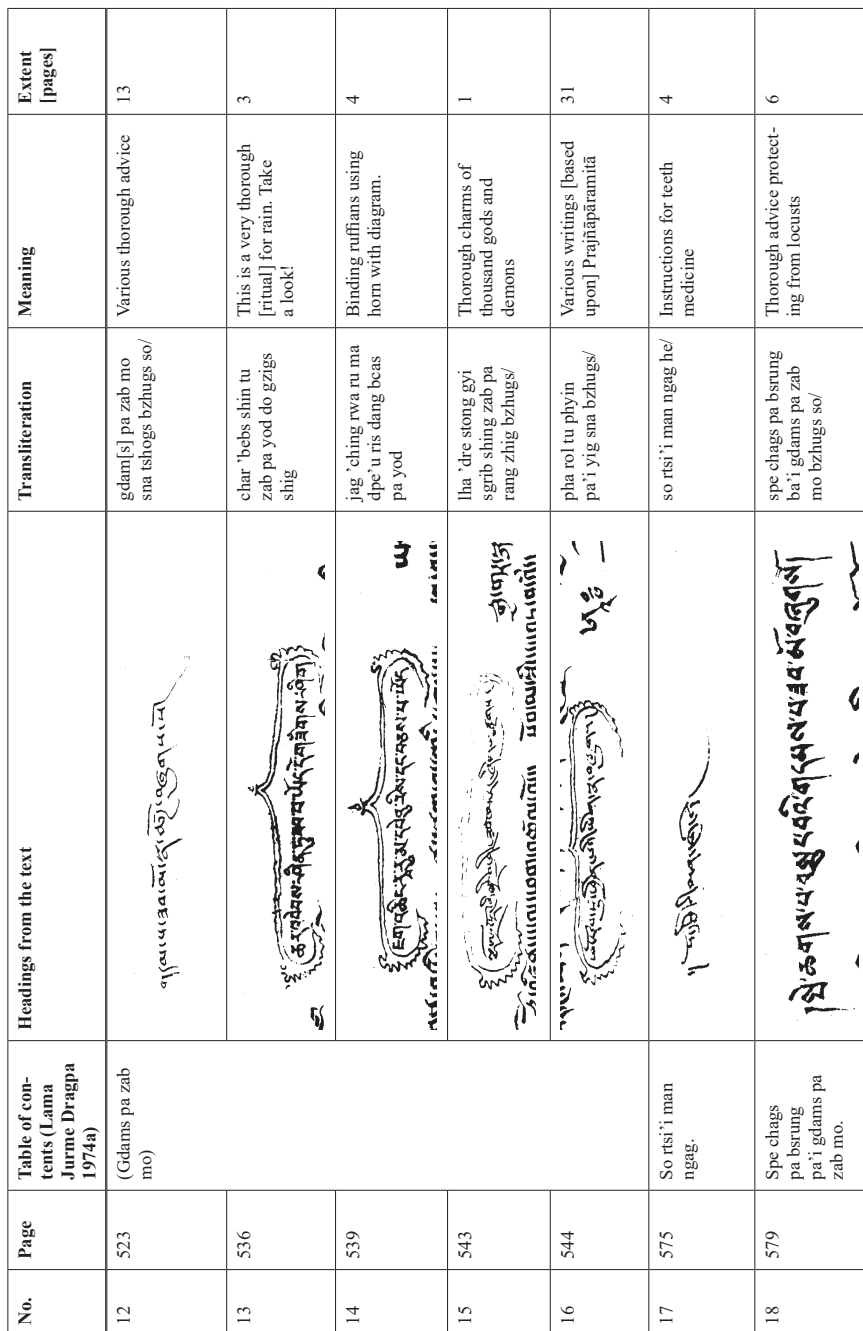 No.
Page
Table of con-
tents (Lama
Jurme Dragpa
1974a)
Headings from the text
Transliteration
Meaning
Extent
[pages]
12
523
(Gdams pa zab
mo)
gdam[s] pa zab mo
sna tshogs bzhugs so/
Various thorough advice
13
13
536
ཆར་འབེབས་ཤིན་ཏུ་ཟབ་པ་ཡོད་དོ་གཟིགས་ཤིག
char ’bebs shin tu
zab pa yod do gzigs
shig
This is a very thorough
[ritual] for rain. Take
a look!
3
14
539
ཇག་འཆིང་རྭ་རུ་མ་དཔེའུ་རིས་དང་བཅས་པ་ཡོད
jag ’ching rwa ru ma
dpe’u ris dang bcas
pa yod
Binding ruffians using
horn with diagram.
4
15
543
lha ’dre stong gyi
sgrib shing zab pa
rang zhig bzhugs/
Thorough charms of
thousand gods and
demons
1
16
544
pha rol tu phyin
pa’i yig sna bzhugs/
Various writings [based
upon] Prajñāpāramitā
31
17
575
So rtsi’i man
ngag.
so rtsi’i man ngag he/
Instructions for teeth
medicine
4
18
579
Spe chags
pa bsrung
pa’i gdams pa
zab mo.
།སྤེ་ཆགས་པ་བསྲུང་བའི་གདམས་པ་ཟབ་མོ་བཞུགས་སོ།
spe chags pa bsrung
ba’i gdams pa zab
mo bzhugs so/
Thorough advice protect-
ing from locusts
6